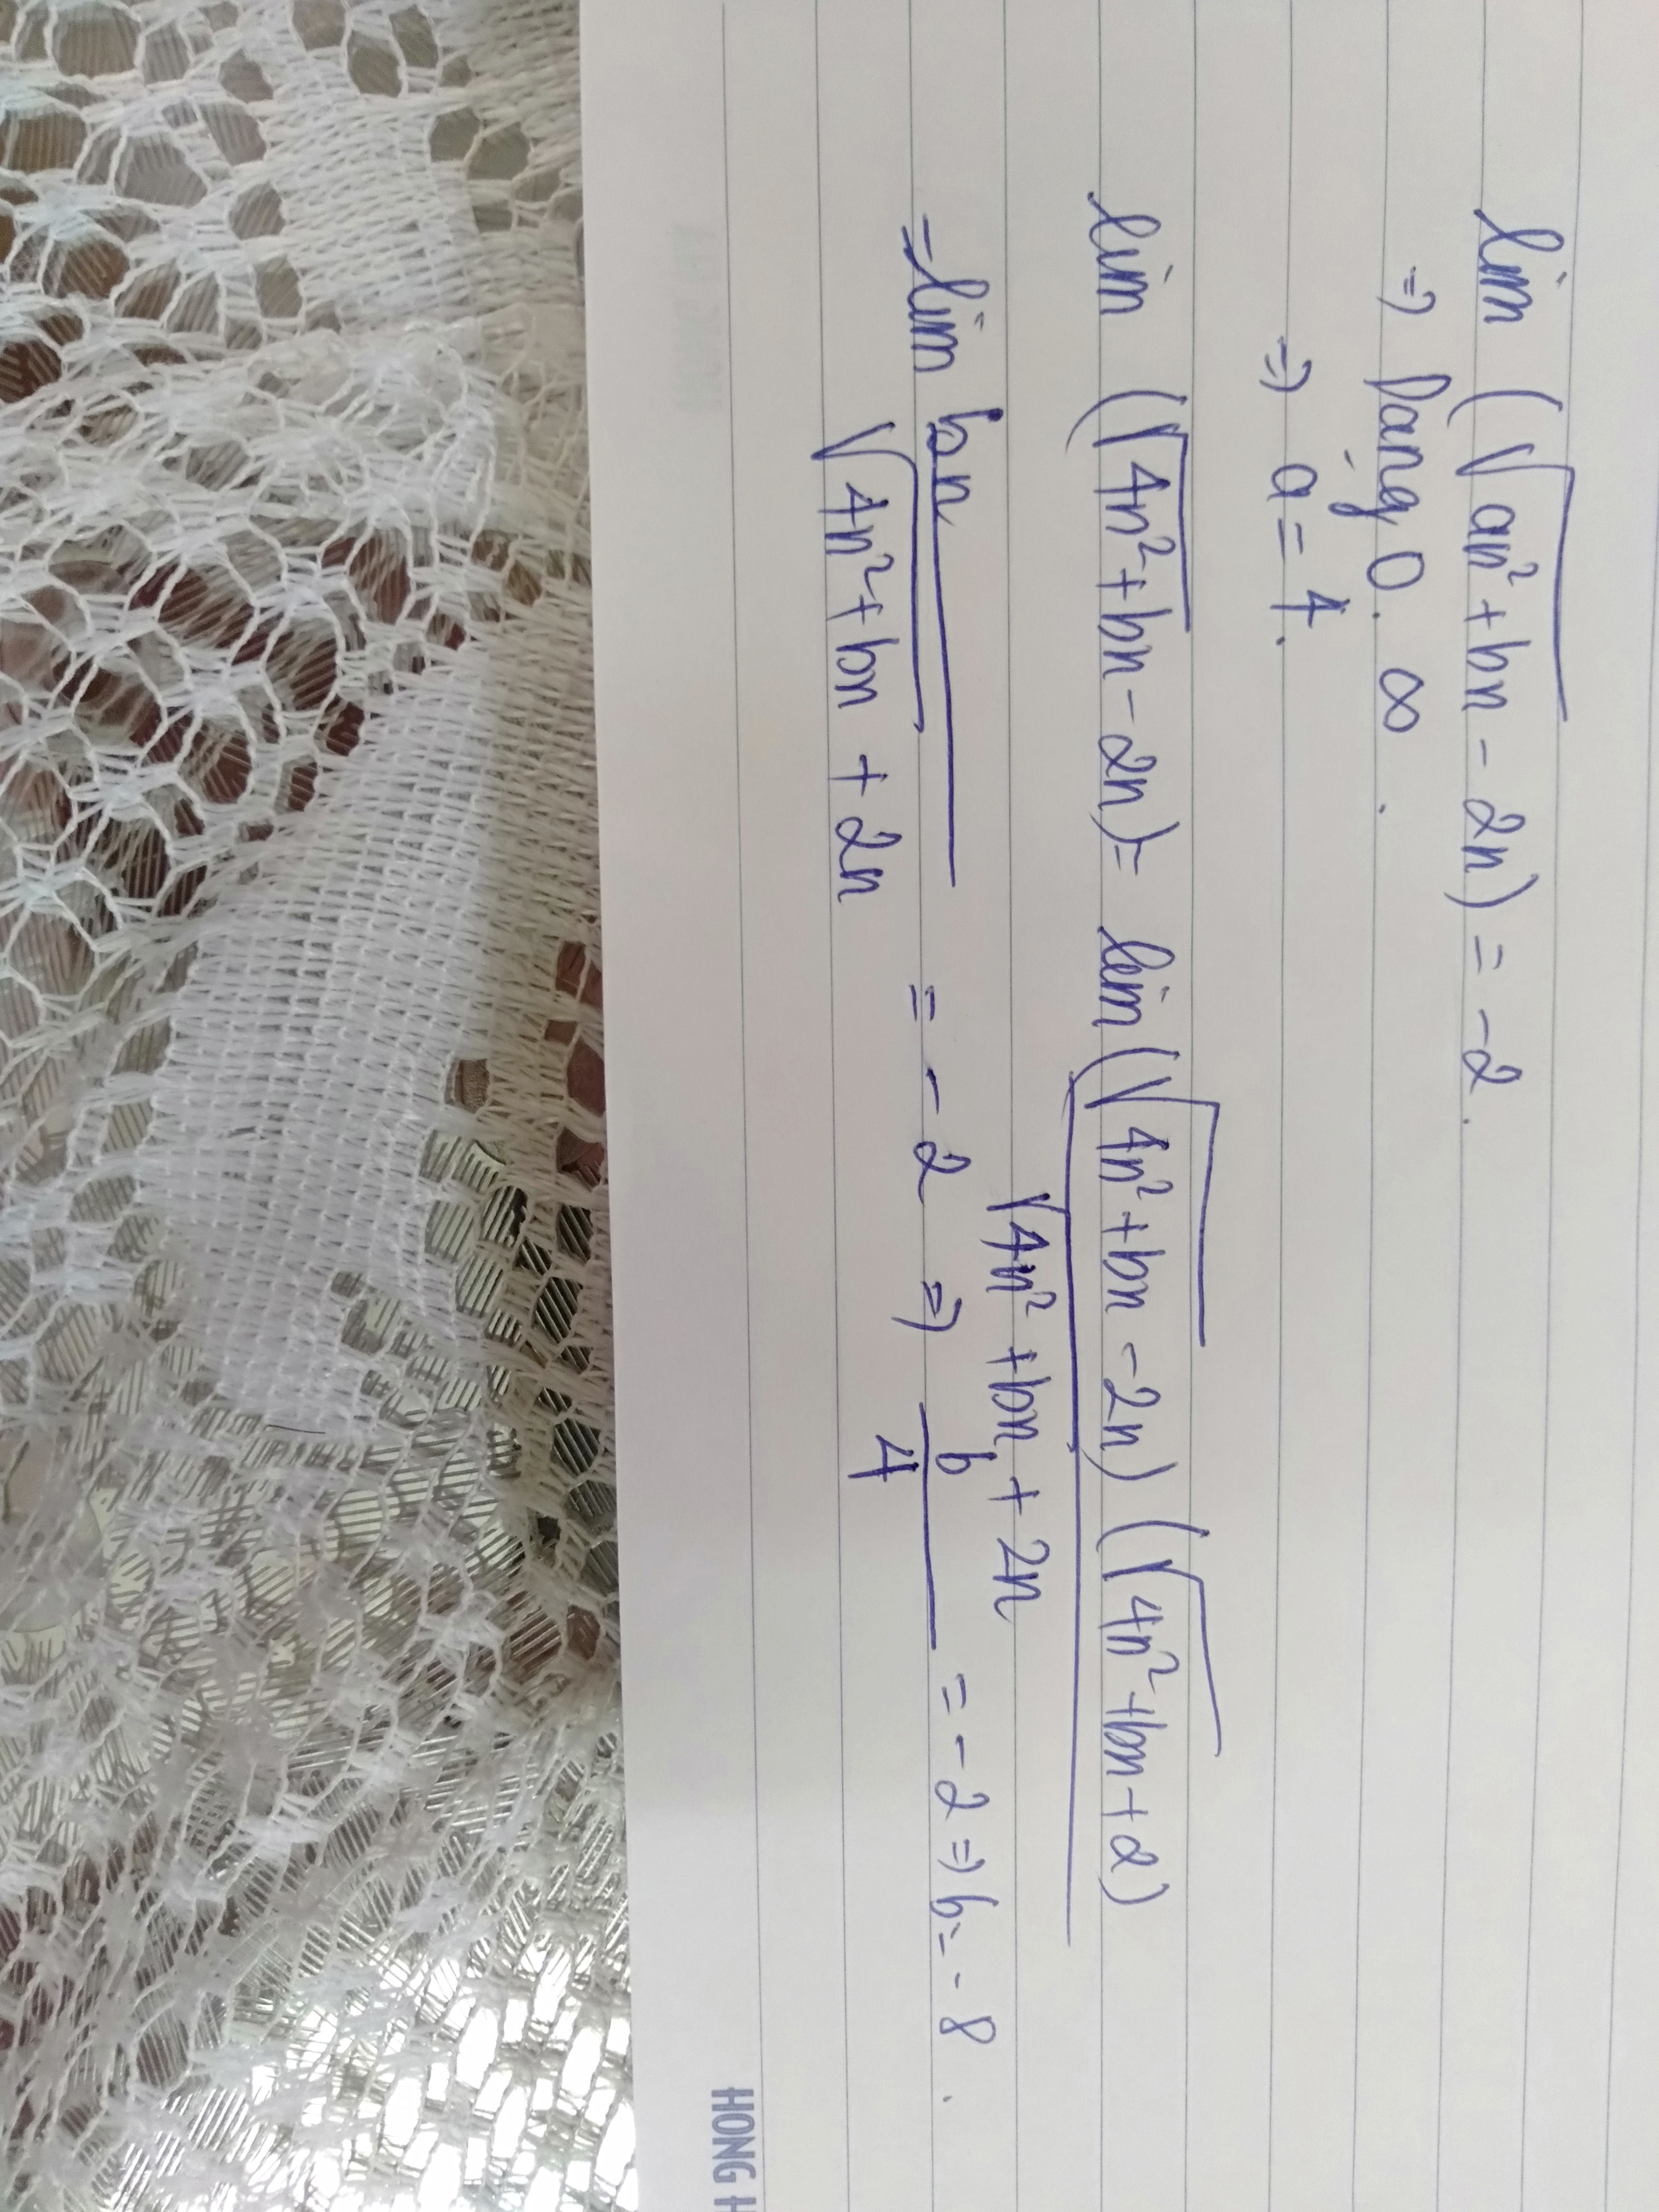 lim (√an²+bn - 2n) = -2.
=> Dạng 0. ∞.
=> a = 4.
lim (√4n²+bn-2n)= lim (√4n²+bn -2n) (√4n²+bn+2)
√4n²+bn + 2n
=lim bn = -2 => b = -2 => b=-8.
√4n²+bn + 2n 4
HONG H